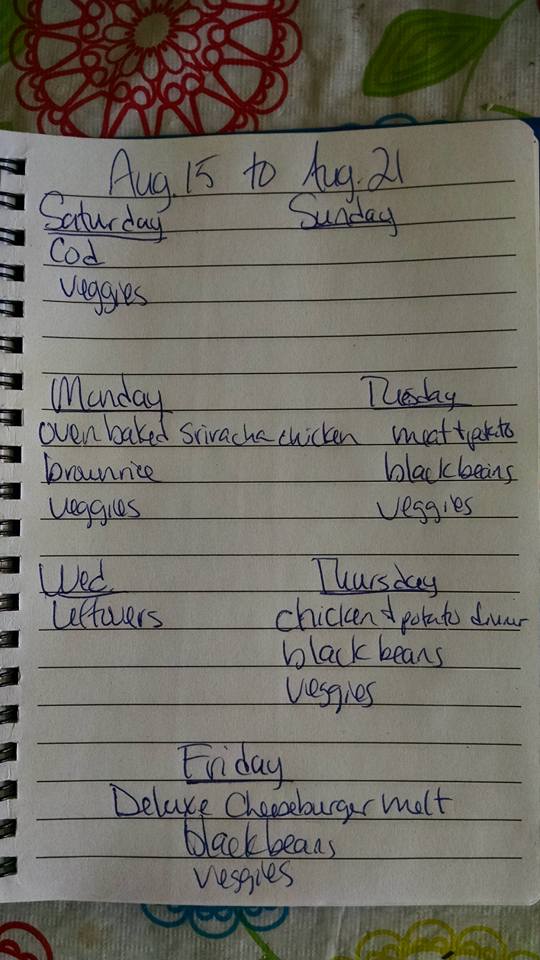 Aug. 15 to Aug. 21
Saturday
Cod
veggies
Sunday
Monday
oven baked Sriracha chicken
brown rice
veggies
Tuesday
meat + potato
black beans
veggies
Wed
Leftovers
Thursday
chicken + potato dinner
black beans
veggies
Friday
Deluxe Cheeseburger melt
black beans
veggies